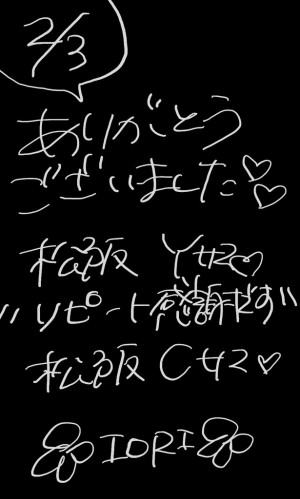 2/3
ありがとう
ございました♡♡
松阪 Y様♡
"リピート感謝です"
松阪 C様♡
IORI